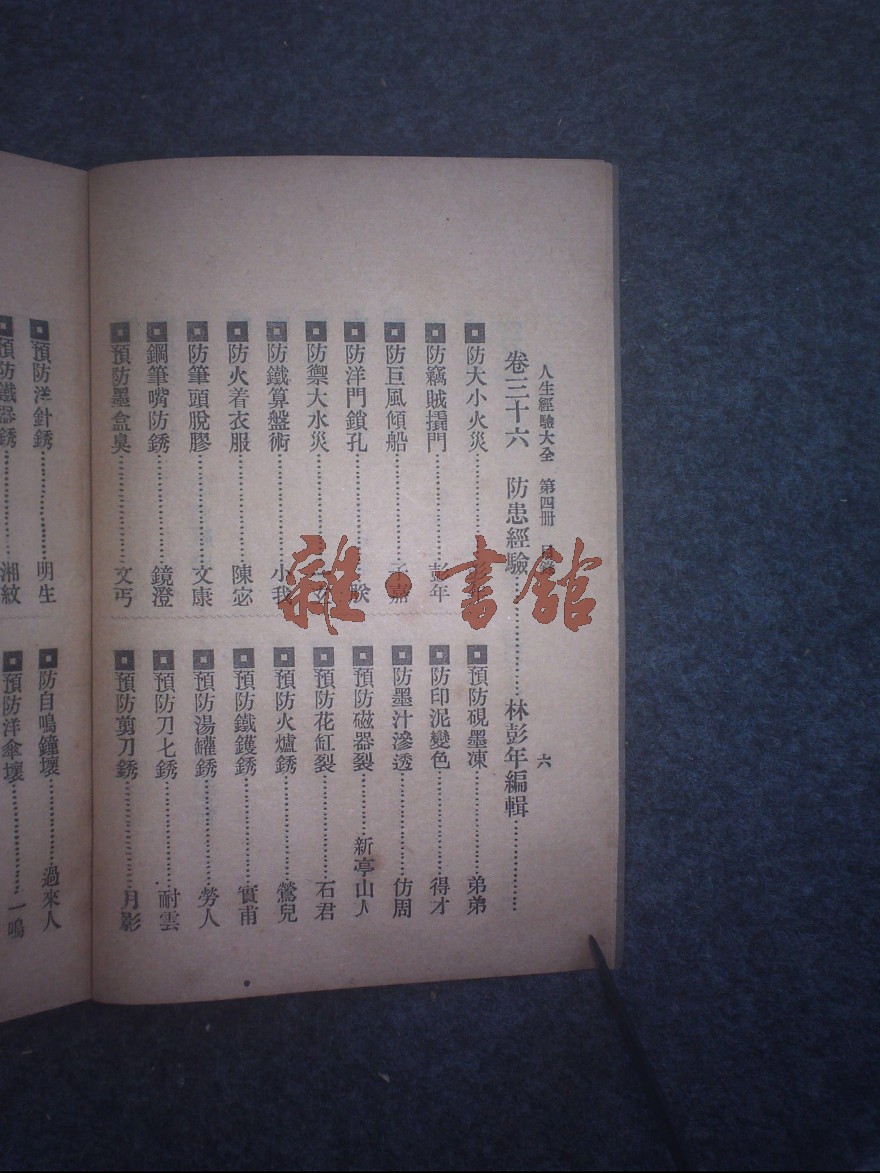 人生經驗大全 第四冊 目錄 六
卷三十六 防患經驗……………林彭年編輯……………
防大小火災……………
防竊賊撬門……………彭年
防巨風傾船……………嘉
防洋門鎖孔……………
防禦大水災……………
防鐵算盤術……………小我
防火着衣服……………陳宓
防筆頭脫膠……………文康
鋼筆嘴防銹……………鏡澄
預防墨盒臭……………文丐
預防硯墨凍……………弟弟
防印泥變色……………得才
防墨汁滲透……………仿周
預防磁器裂……………新亭山人
預防花缸裂……………石君
預防火爐銹……………鶯兒
預防鐵鑊銹……………實甫
預防湯罐銹……………勞人
預防刀七銹……………耐雲
預防剪刀銹……………月影
預防洋針銹……………明生
預防鐵器銹……………湘紋
防自鳴鐘壞……………過來人
預防洋傘壞……………一鳴
雜·書館